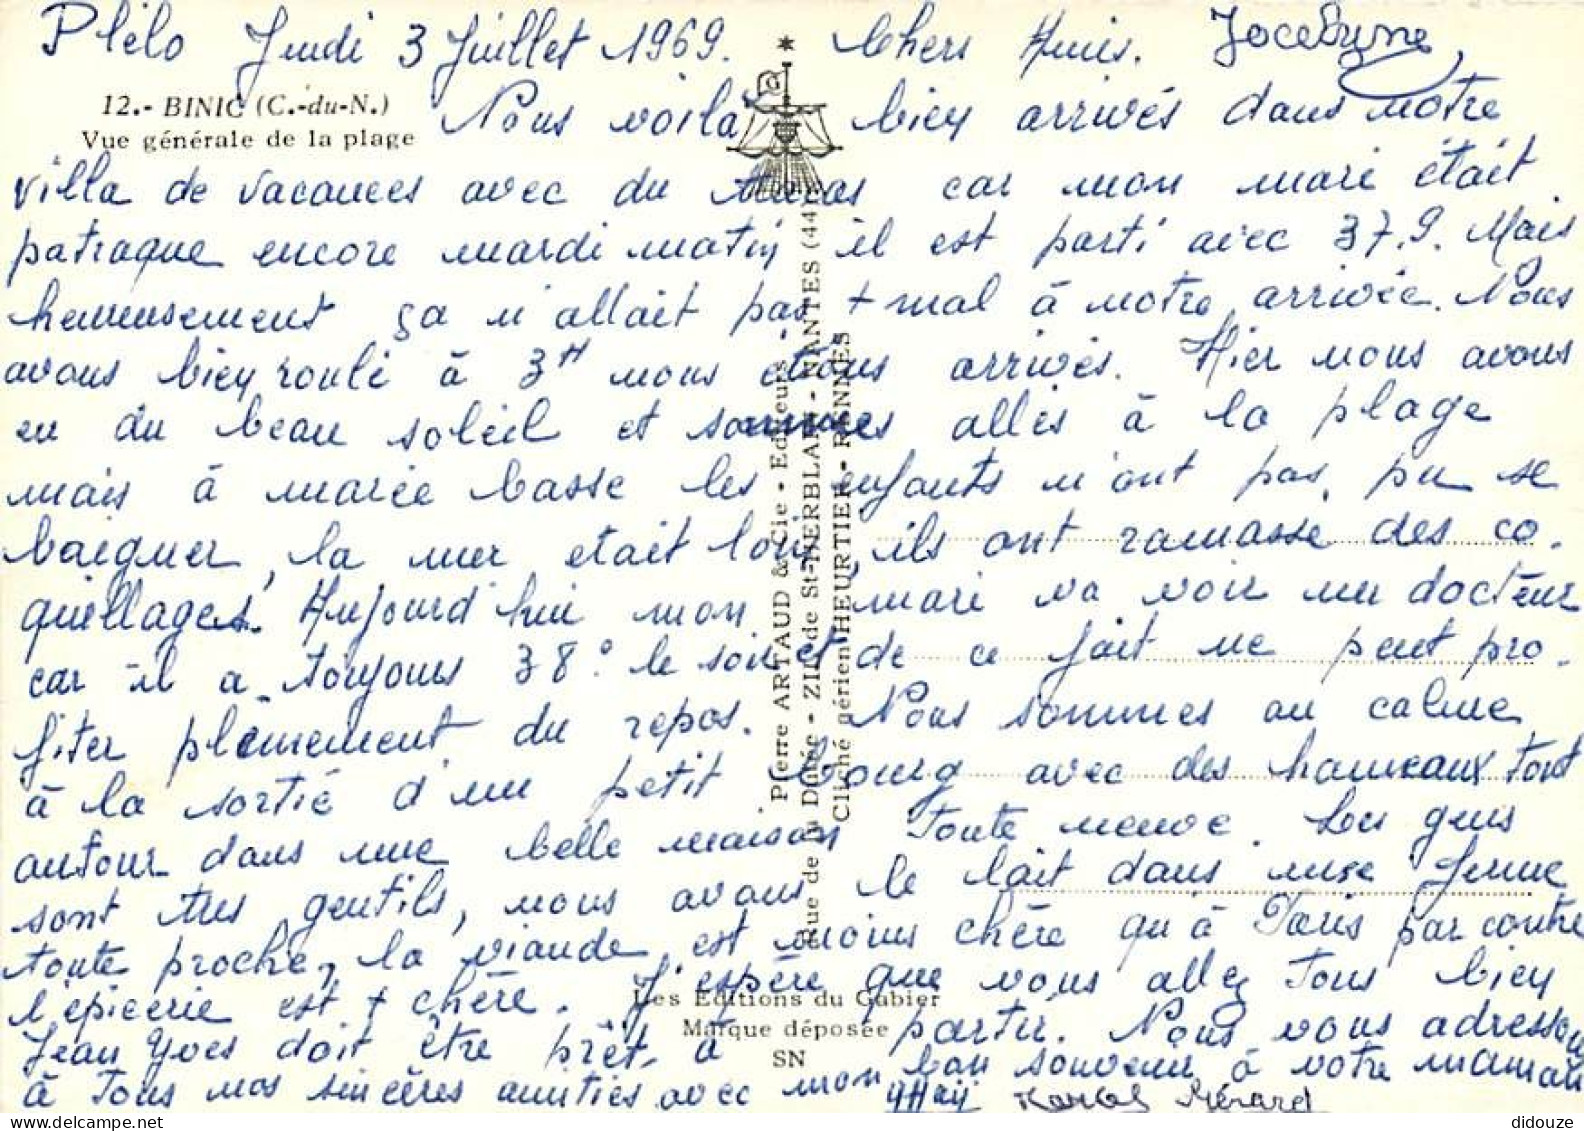 Plélo Jeudi 3 Juillet 1969. Chers Amis. Jocelyne
12.- BINIC (C.-du-N.)
Vue générale de la plage
Nous voilà bien arrivés dans notre
villa de vacances avec du car mon mari était
patraque encore mardi matin il est parti avec 37.9. Mais
heureusement ça n'allait pas + mal à notre arrivée. Nous
avons bien roulé à 3H nous étions arrivés. Hier nous avons
eu du beau soleil et sommes allés à la plage
mais à marée basse les enfants n'ont pas pu se
baigner, la mer etait loin, ils ont ramassé des co-
quillages. Aujourd'hui mon mari va voir un docteur
car il a toujours 38° le soir et de ce fait ne peut pro-
fiter pleinement du repos. Nous sommes au calme
à la sortie d'un petit bourg avec des hameaux tout
autour dans une belle maison toute neuve. Les gens
sont très gentils, nous avons le lait dans une ferme
toute proche, la viande est moins chère qu'à Paris par contre
l'épicerie est + chère. J'espère que vous allez tous bien
Jean Yves doit être prêt à partir. Nous vous adressons
à tous nos sincères amitiés avec mon bon souvenir à votre maman
Gérard
Pierre ARTAUD & Cie - Editeurs -
Rue de la Dutée - ZIL de St-HERBLAIN - NANTES (44)
Cliché gérien HEURTIER - RENNES
Les Editions du Gabier
Marque déposée
SN
didouze